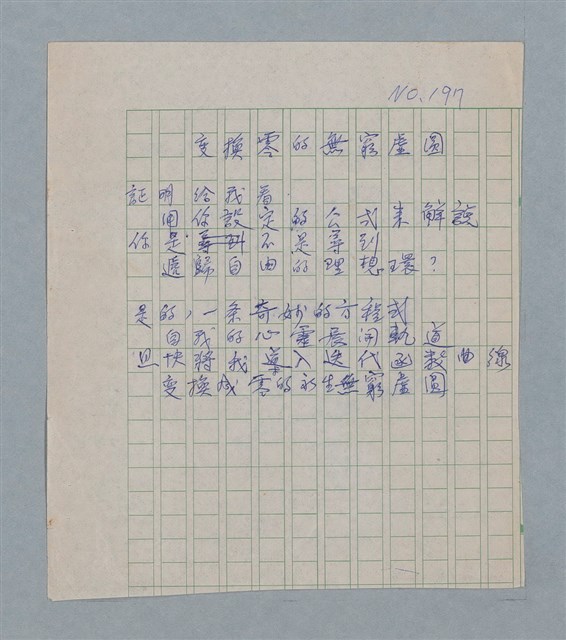 NO. 197
变換零的無窮虛圓
証明給我看.
用你設定的公式来解說
你是 尋到 不是尋到
遞歸自由的理想環？
是的，一条奇妙的方程式
自我的心靈展開軌道
且快將我導入迭代函数曲線
变換成零的永生無窮虛圓